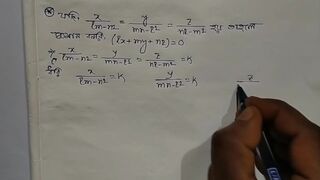 * যদি, x/lm-n² = y/mn-l² = z/nl-m² হয় তাহলে
প্রমাণ করি, (lx+my+nz)=0
x/lm-n² = y/mn-l² = z/nl-m²
ধরি x/lm-n² = k y/mn-l² = k z